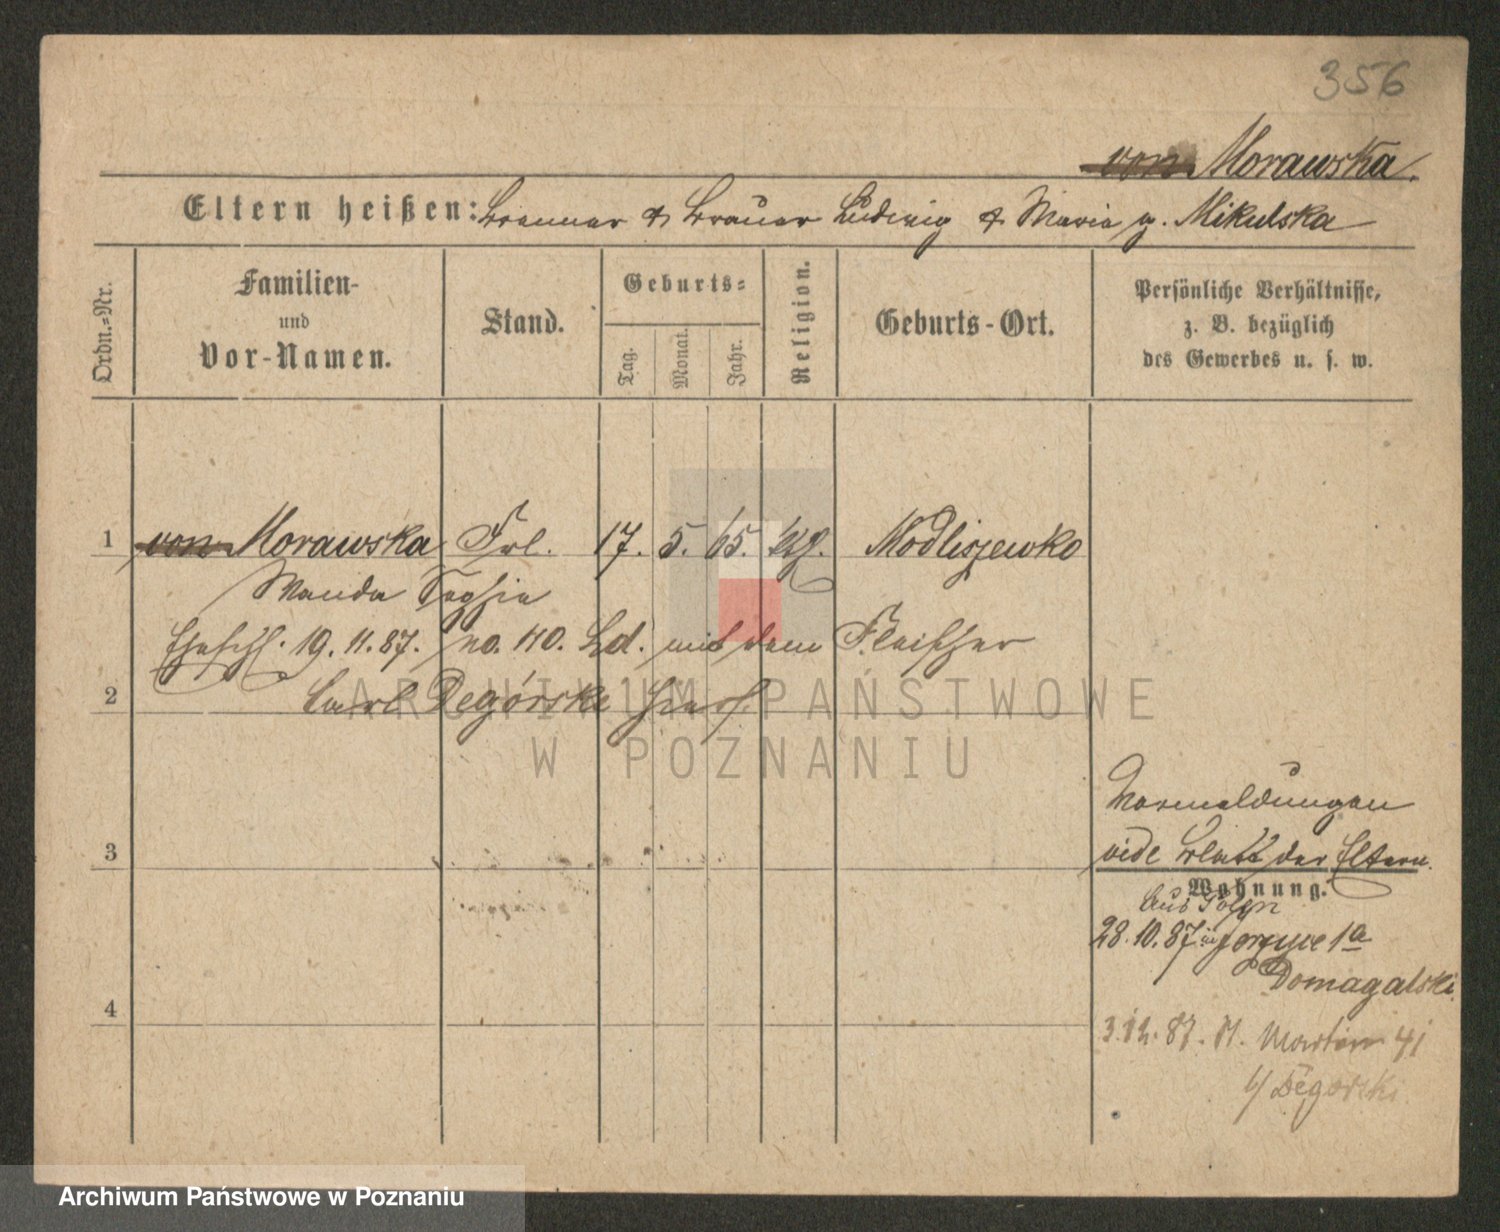 356
von Morawska.
Eltern heißen: Brenner & Brauer Ludwig & Maria g. Mikulska
Ordn.-Nr.
Familien- und Vor-Namen.
Stand.
Geburts-
Tag.
Monat.
Jahr.
Religion.
Geburts-Ort.
Persönliche Verhältnisse, z. B. bezüglich des Gewerbes u. s. w.
1 von Morawska Frl. 17. 5. 65. kth. Modliszewko
Wanda Sophie
Eheschl. 19.11.87. no. 410. Ld. mit dem Fleischer
2 Carl Degórski hies.
3
4
Vormeldungen
vide Blatt der Eltern.
Wohnung.
Aus
28.10.87 1a
Domagalski
3.12.87. St. Martin 41
b/ Degorski
ARCHIWUM PAŃSTWOWE
W POZNANIU
Archiwum Państwowe w Poznaniu